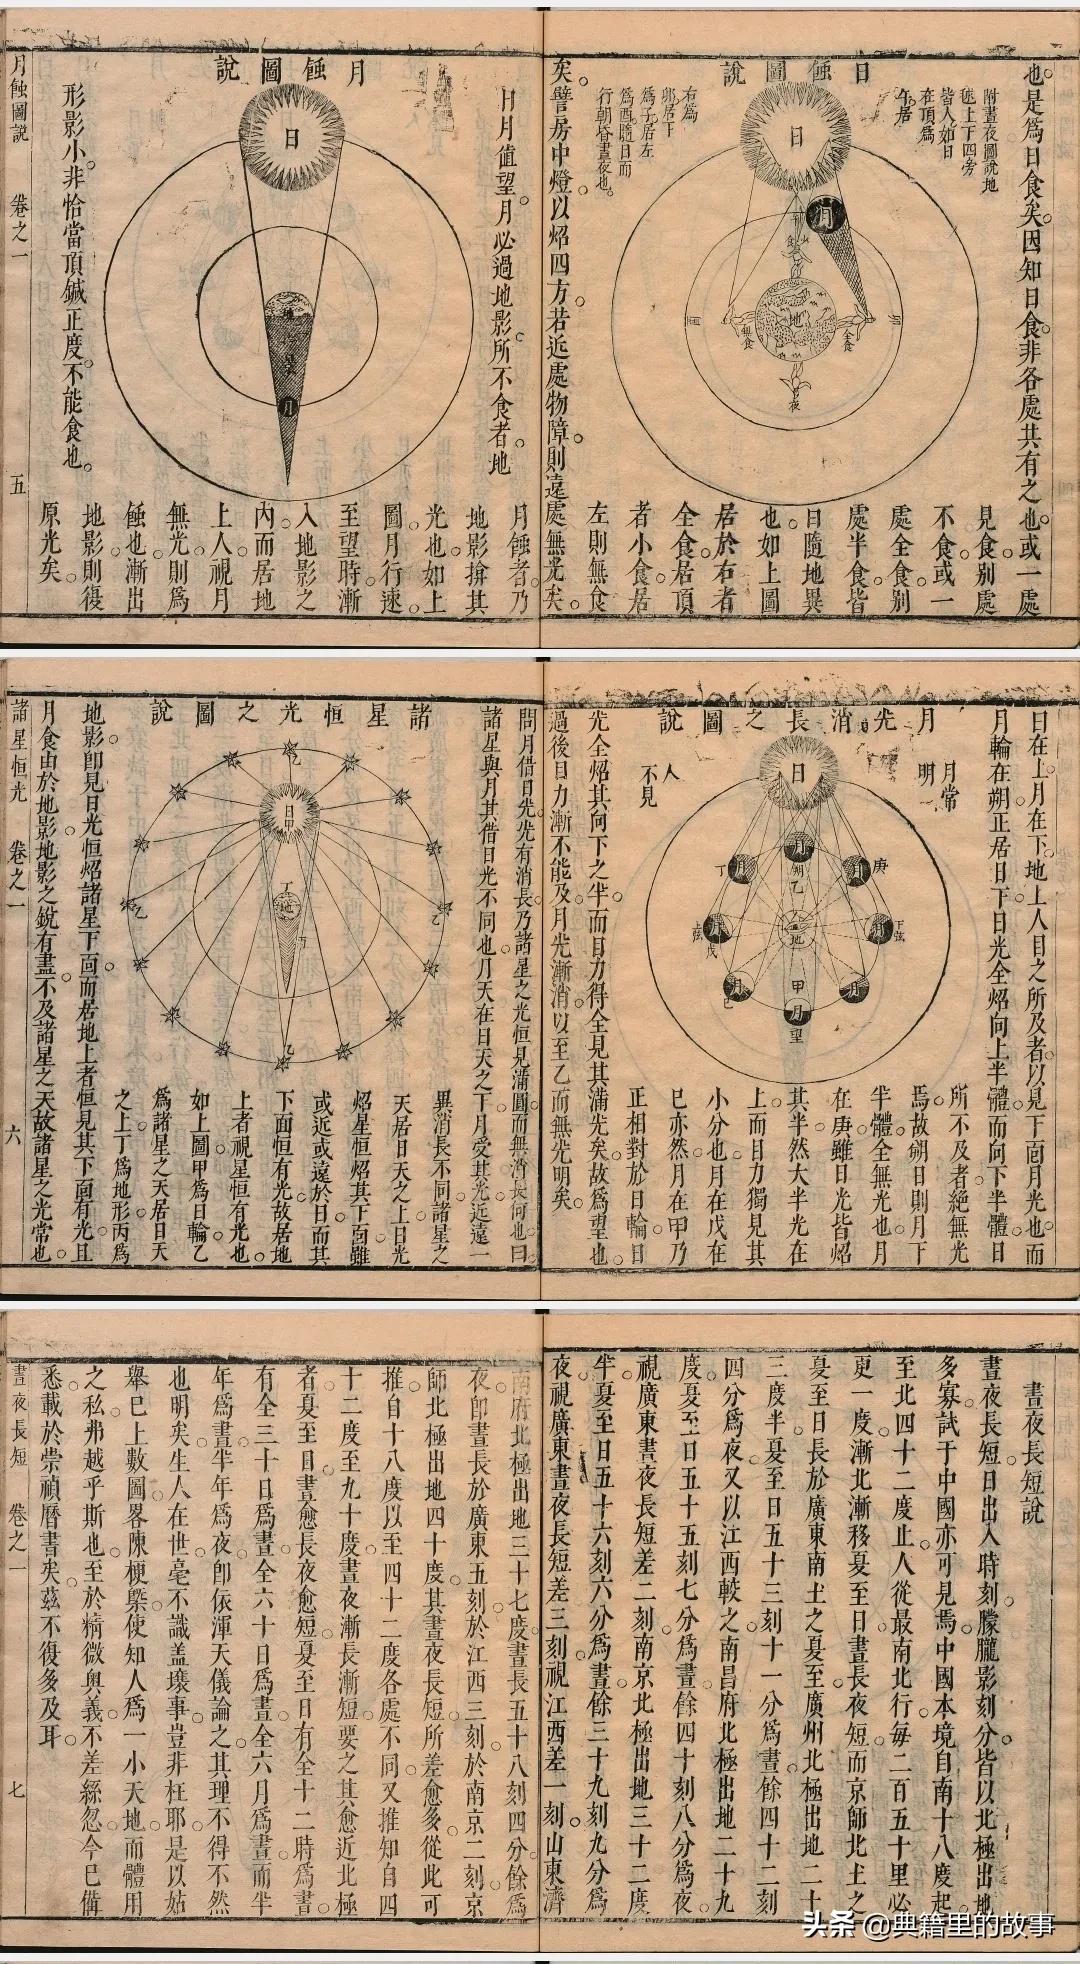 也是為日食矣因知日食非各處共有之也或一處
日蝕圖說
附晝夜圖說地
毬上下四旁
皆人如日
在頂為
午居
有為
卯居下
為子居左
為酉隨日而
行朝昏晝夜也
日
月
地
卯
酉
全食
無食
夜
見食別處
不食或一
處全食别
處半食皆
日隨地異
也如上圖
居於右者
全食居頂
者小食居
左則無食
矣譬房中燈以炤四方若近處物障則遠處無光矣
月蝕圖說
日月值望月必過地影所不食者地
日
地
景
月
形影小非恰當頂鍼正度不能食也
月蝕者乃
地影揜其
光也如上
圖月行速
至望時漸
入地影之
內而居地
上人視月
無光則為
蝕也漸出
地影則復
原光矣
月蝕圖說 卷之一 五
日在上月在下地上人目之所及者以見下面月光也而
月輪在朔正居日下日光全炤向上半體而向下半體日
月光消長之圖說
月常
明
人
不見
日
月
朔乙
庚
下弦
月
甲
月
望
月
己
月
上弦
戊
月
丁
地
所不及者絕無光
焉故朔日則月下
半體全無光也月
在庚雖日光皆炤
其半然大半光在
上而目力獨見其
小分也月在戊在
巳亦然月在甲乃
正相對於日輪日
光全炤其向下之半而目力得全見其滿光矣故為望也
過後目力漸不能及月光漸消以至乙而無光明矣
問月借日光光有消長乃諸星之光恒見滿圓而無消長何也曰
諸星與月其借日光不同也月天在日天之下月受其光近遠一
諸星恒光之圖說
乙
日甲
丁
地
丙
乙
乙
乙
異消長不同諸星之
天居日天之上日光
炤星恒炤其下面雖
或近或遠於日而其
下面恒有光故居地
上者視星恒有光也
如上圖甲為日輪乙
為諸星之天居日天
之上丁為地形丙為
地影卽見日光恒炤諸星下面而居地上者恒見其下面有光且
月食由於地影地影之銳有盡不及諸星之天故諸星之光常也
諸星恒光 卷之一 六
晝夜長短說
晝夜長短日出入時刻朦朧影刻分皆以北極出地
多寡試于中國亦可見焉中國本境自南十八度起
至北四十二度止人從最南北行每二百五十里必
更一度漸北漸移夏至日晝長夜短而京師北土之
夏至日長於廣東南土之夏至廣州北極出地二十
三度半夏至日五十三刻十一分為晝餘四十二刻
四分為夜又以江西較之南昌府北極出地二十九
度夏至日五十五刻七分為晝餘四十刻八分為夜
視廣東晝夜長短差二刻南京北極出地三十二度
半夏至日五十六刻六分為晝餘三十九刻九分為
夜視廣東晝夜長短差三刻視江西差一刻山東濟
南府北極出地三十七度晝長五十八刻四分餘為
夜卽晝長於廣東五刻於江西三刻於南京二刻京
師北極出地四十度其晝夜長短所差愈多從此可
推自十八度以至四十二度各處不同又推知自四
十二度至九十度晝夜漸長漸短要之其愈近北極
者夏至日晝愈長夜愈短夏至日有全十二時為晝
有全三十日為晝全六十日為晝全六月為晝而半
年為晝半年為夜卽依渾天儀論之其理不得不然
也明矣生人在世毫不識盖壤事豈非枉耶是以姑
舉巳上數圖畧陳梗槩使知人為一小天地而體用
之私弗越乎斯也至於精微奧義不差綵忽今巳備
悉載於崇禎曆書矣茲不復多及耳
晝夜長短 卷之一 七
头条 @典籍里的故事